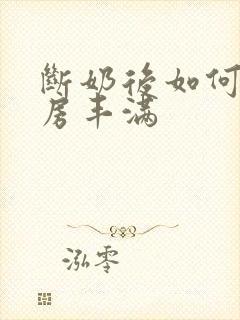 斷奶後如何
房丰满
泓零